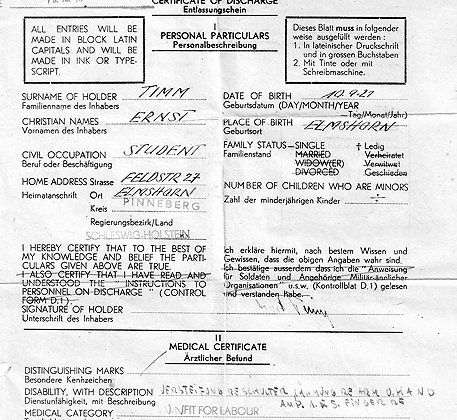 CERTIFICATE OF DISCHARGE
Entlassungschein
I
PERSONAL PARTICULARS
Personalbeschreibung
ALL ENTRIES WILL BE
MADE IN BLOCK LATIN
CAPITALS AND WILL BE
MADE IN INK OR TYPE-
SCRIPT.
Dieses Blatt muss in folgender
weise ausgefüllt werden :
1. In lateinischer Druckschrift
und in grossen Buchstaben
2. Mit Tinte oder mit
Schreibmaschine.
SURNAME OF HOLDER TIMM
Familienname des Inhabers
CHRISTIAN NAMES ERNST
Vornamen des Inhabers
CIVIL OCCUPATION STUDENT
Beruf oder Beschäftigung
HOME ADDRESS Strasse FELDSTR 27
Heimatanschrift Ort ELMSHORN
Kreis PINNEBERG
Regierungsbezirk/Land
SCHLESWIG-HOLSTEIN
DATE OF BIRTH 10.9.27
Geburtsdatum (DAY/MONTH/YEAR
—Tag/Monat/Jahr)
PLACE OF BIRTH ELMSHORN
Geburtsort
FAMILY STATUS—SINGLE † Ledig
Familienstand MARRIED Verheiratet
WIDOW(ER) Verwitwet
DIVORCED Geschieden
NUMBER OF CHILDREN WHO ARE MINORS
Zahl der minderjährigen Kinder
I HEREBY CERTIFY THAT TO THE BEST OF
MY KNOWLEDGE AND BELIEF THE PARTI-
CULARS GIVEN ABOVE ARE TRUE.
I ALSO CERTIFY THAT I HAVE READ AND
UNDERSTOOD THE "INSTRUCTIONS TO
PERSONNEL ON DISCHARGE" (CONTROL
FORM D.1).
SIGNATURE OF HOLDER
Unterschrift des Inhabers
Ich erkläre hiermit, nach bestem Wissen und
Gewissen, dass die obigen Angaben wahr sind.
Ich bestätige ausserdem dass ich die "Anweisung
für Soldaten und Angehörige Militär-ähnlicher
Organisationen" u.s.w. (Kontrollblat D.1) gelesen
und verstanden habe.
II
MEDICAL CERTIFICATE
Ärztlicher Befund
DISTINGUISHING MARKS
Besondere Kennzeichen
DISABILITY, WITH DESCRIPTION VERSTEIFUNG RE SCHULTER
Dienstunfähigkeit, mit Beschreibung
MEDICAL CATEGORY UNFIT FOR LABOUR